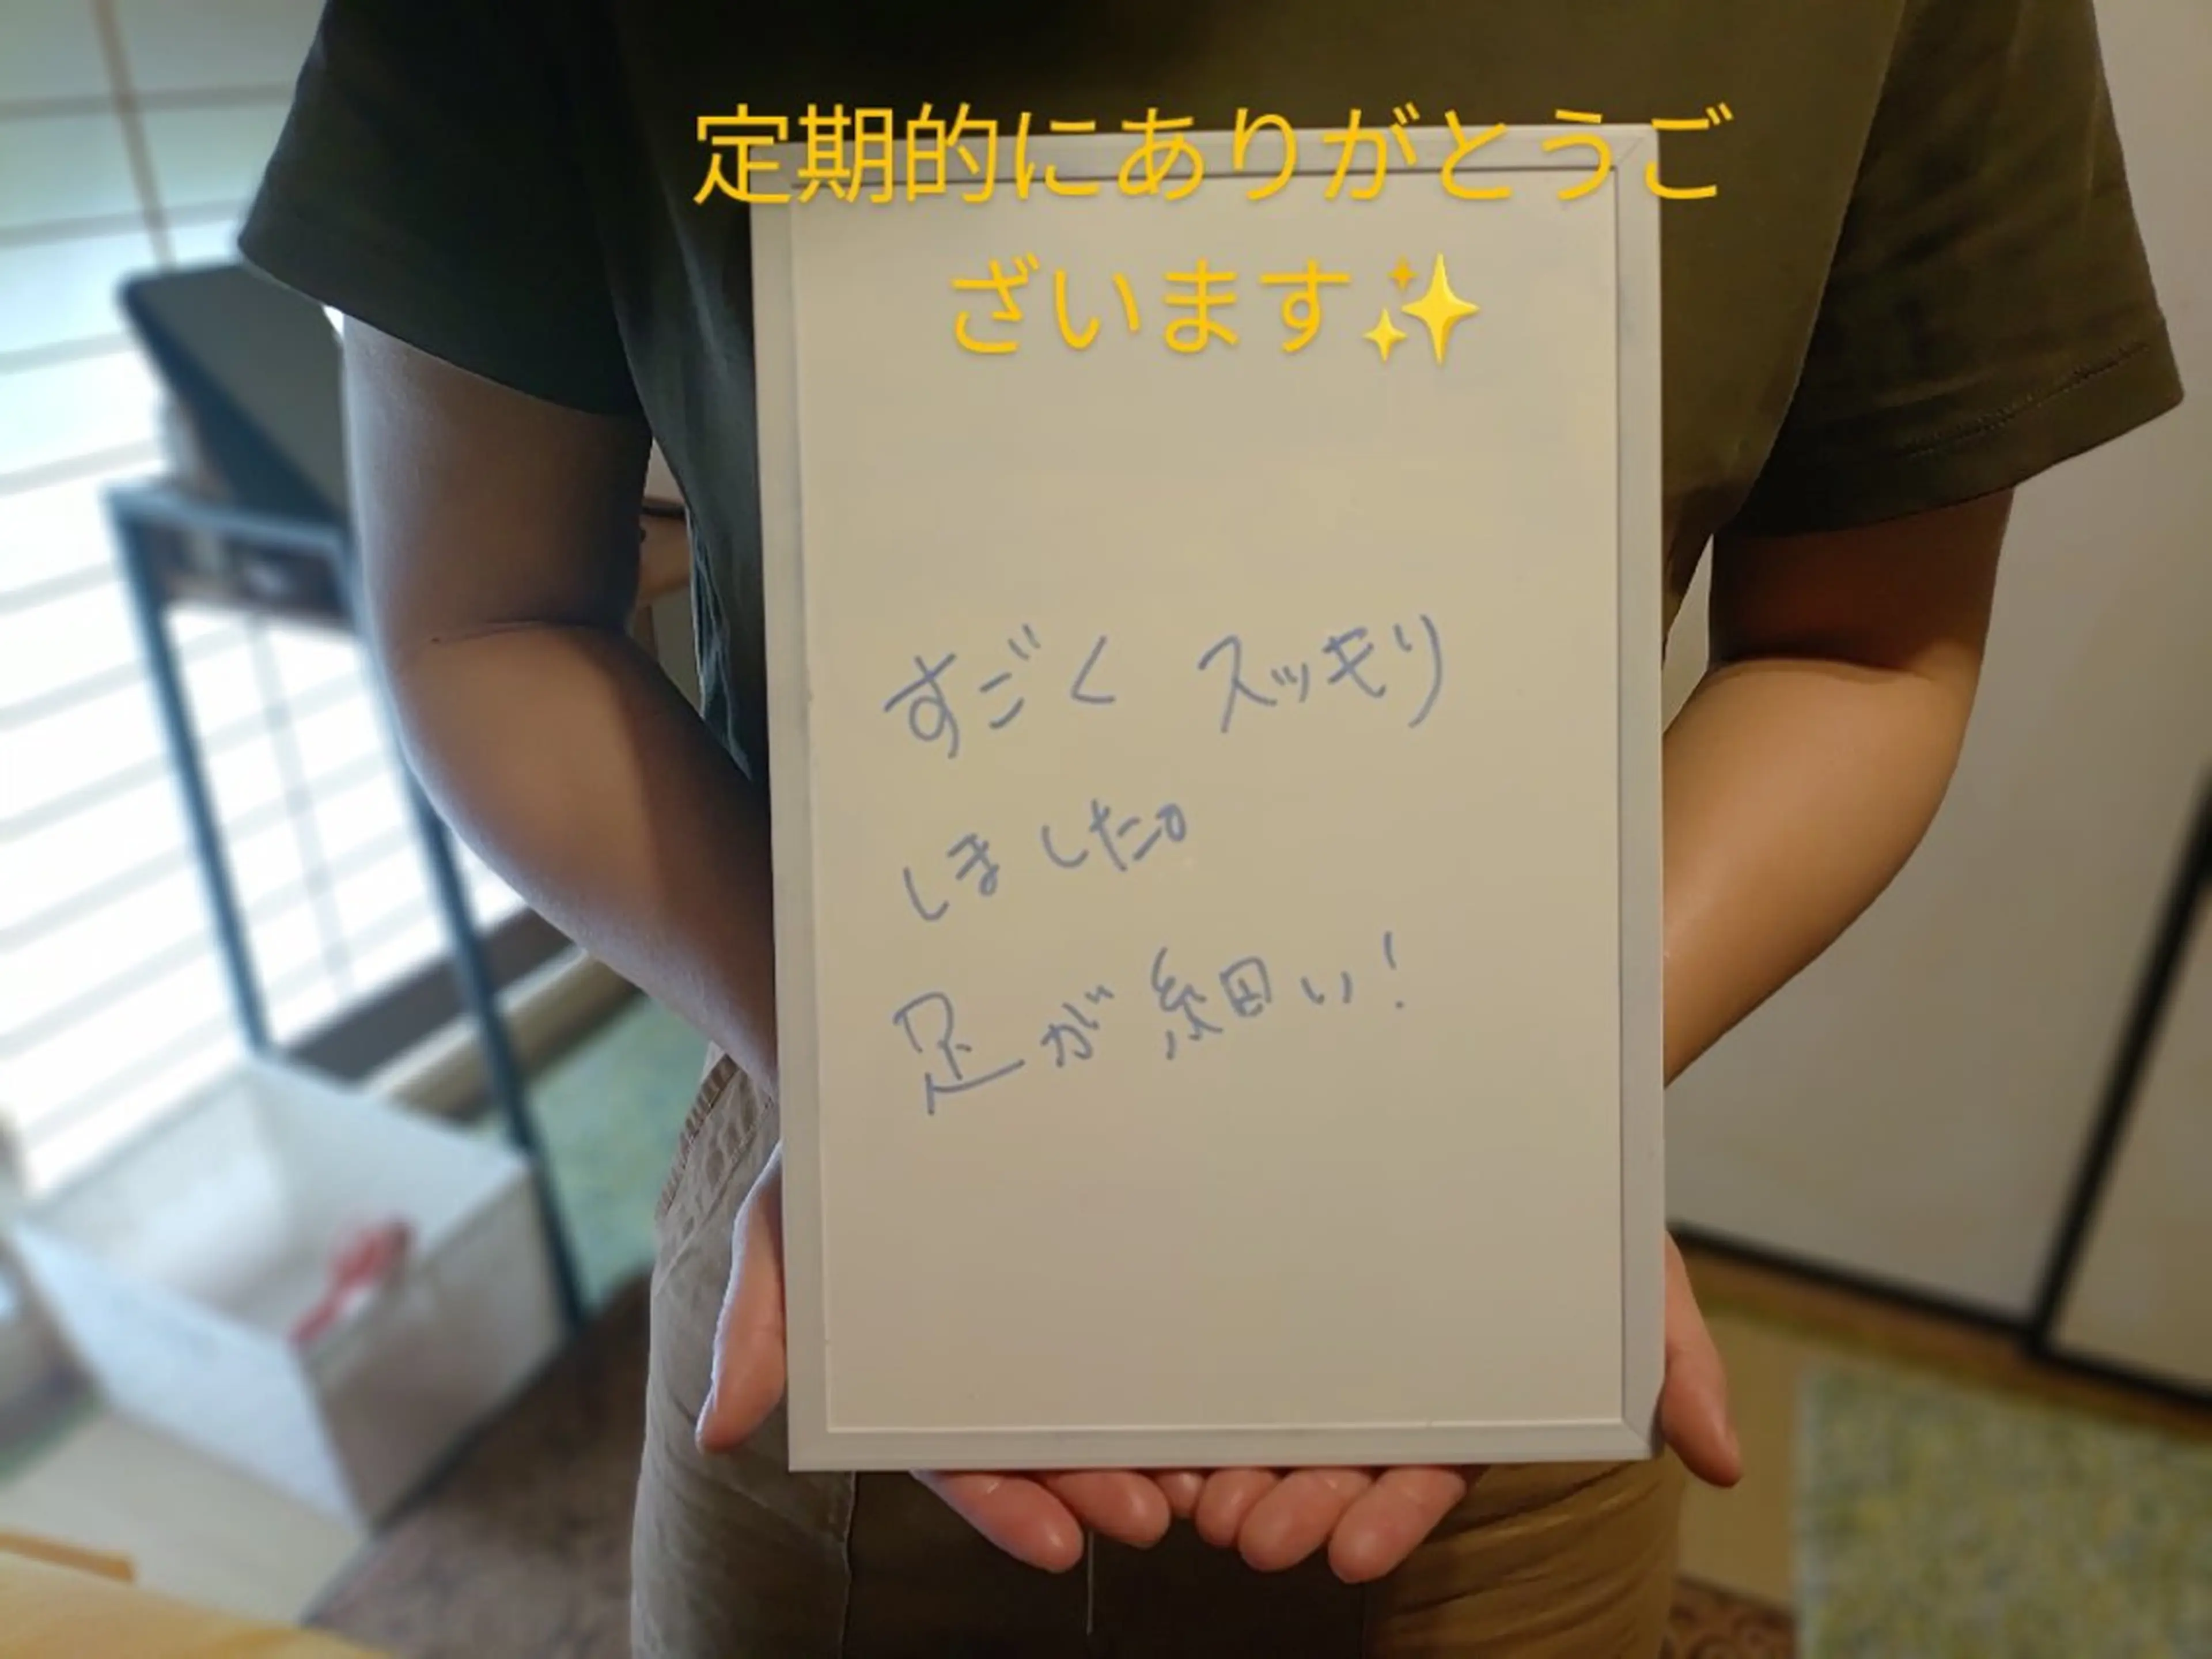 定期的にありがとうご
ざいます✨
すごく スッキリ
しました。
足が細い!